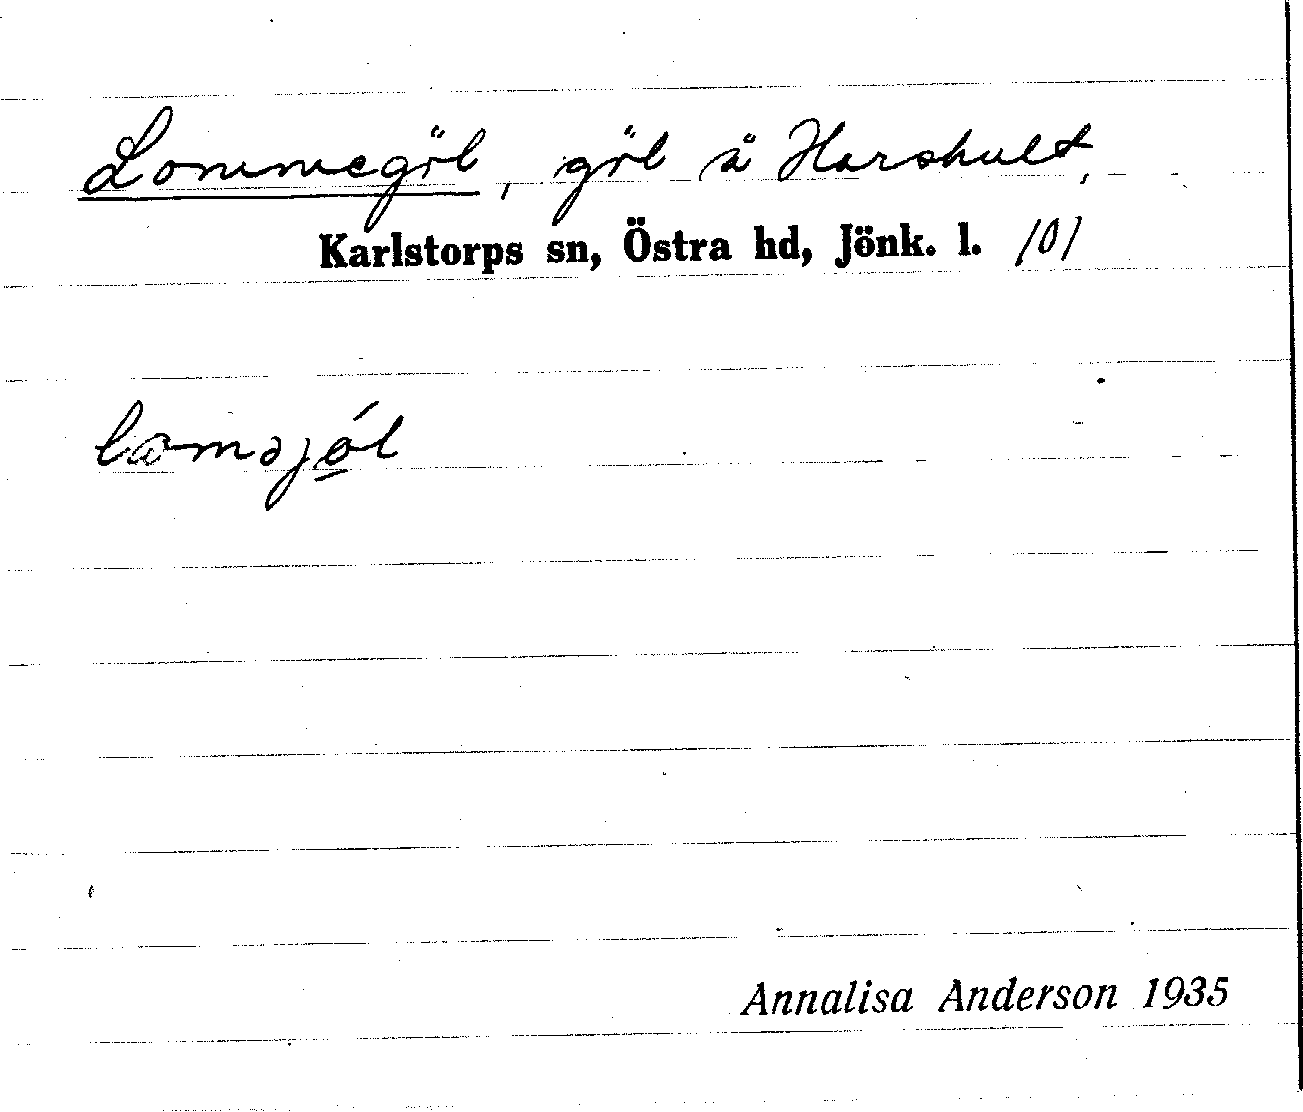 Lommegöl, göl å Harshult,
Karlstorps sn, Östra hd, Jönk. l. 101
Annalisa Anderson 1935